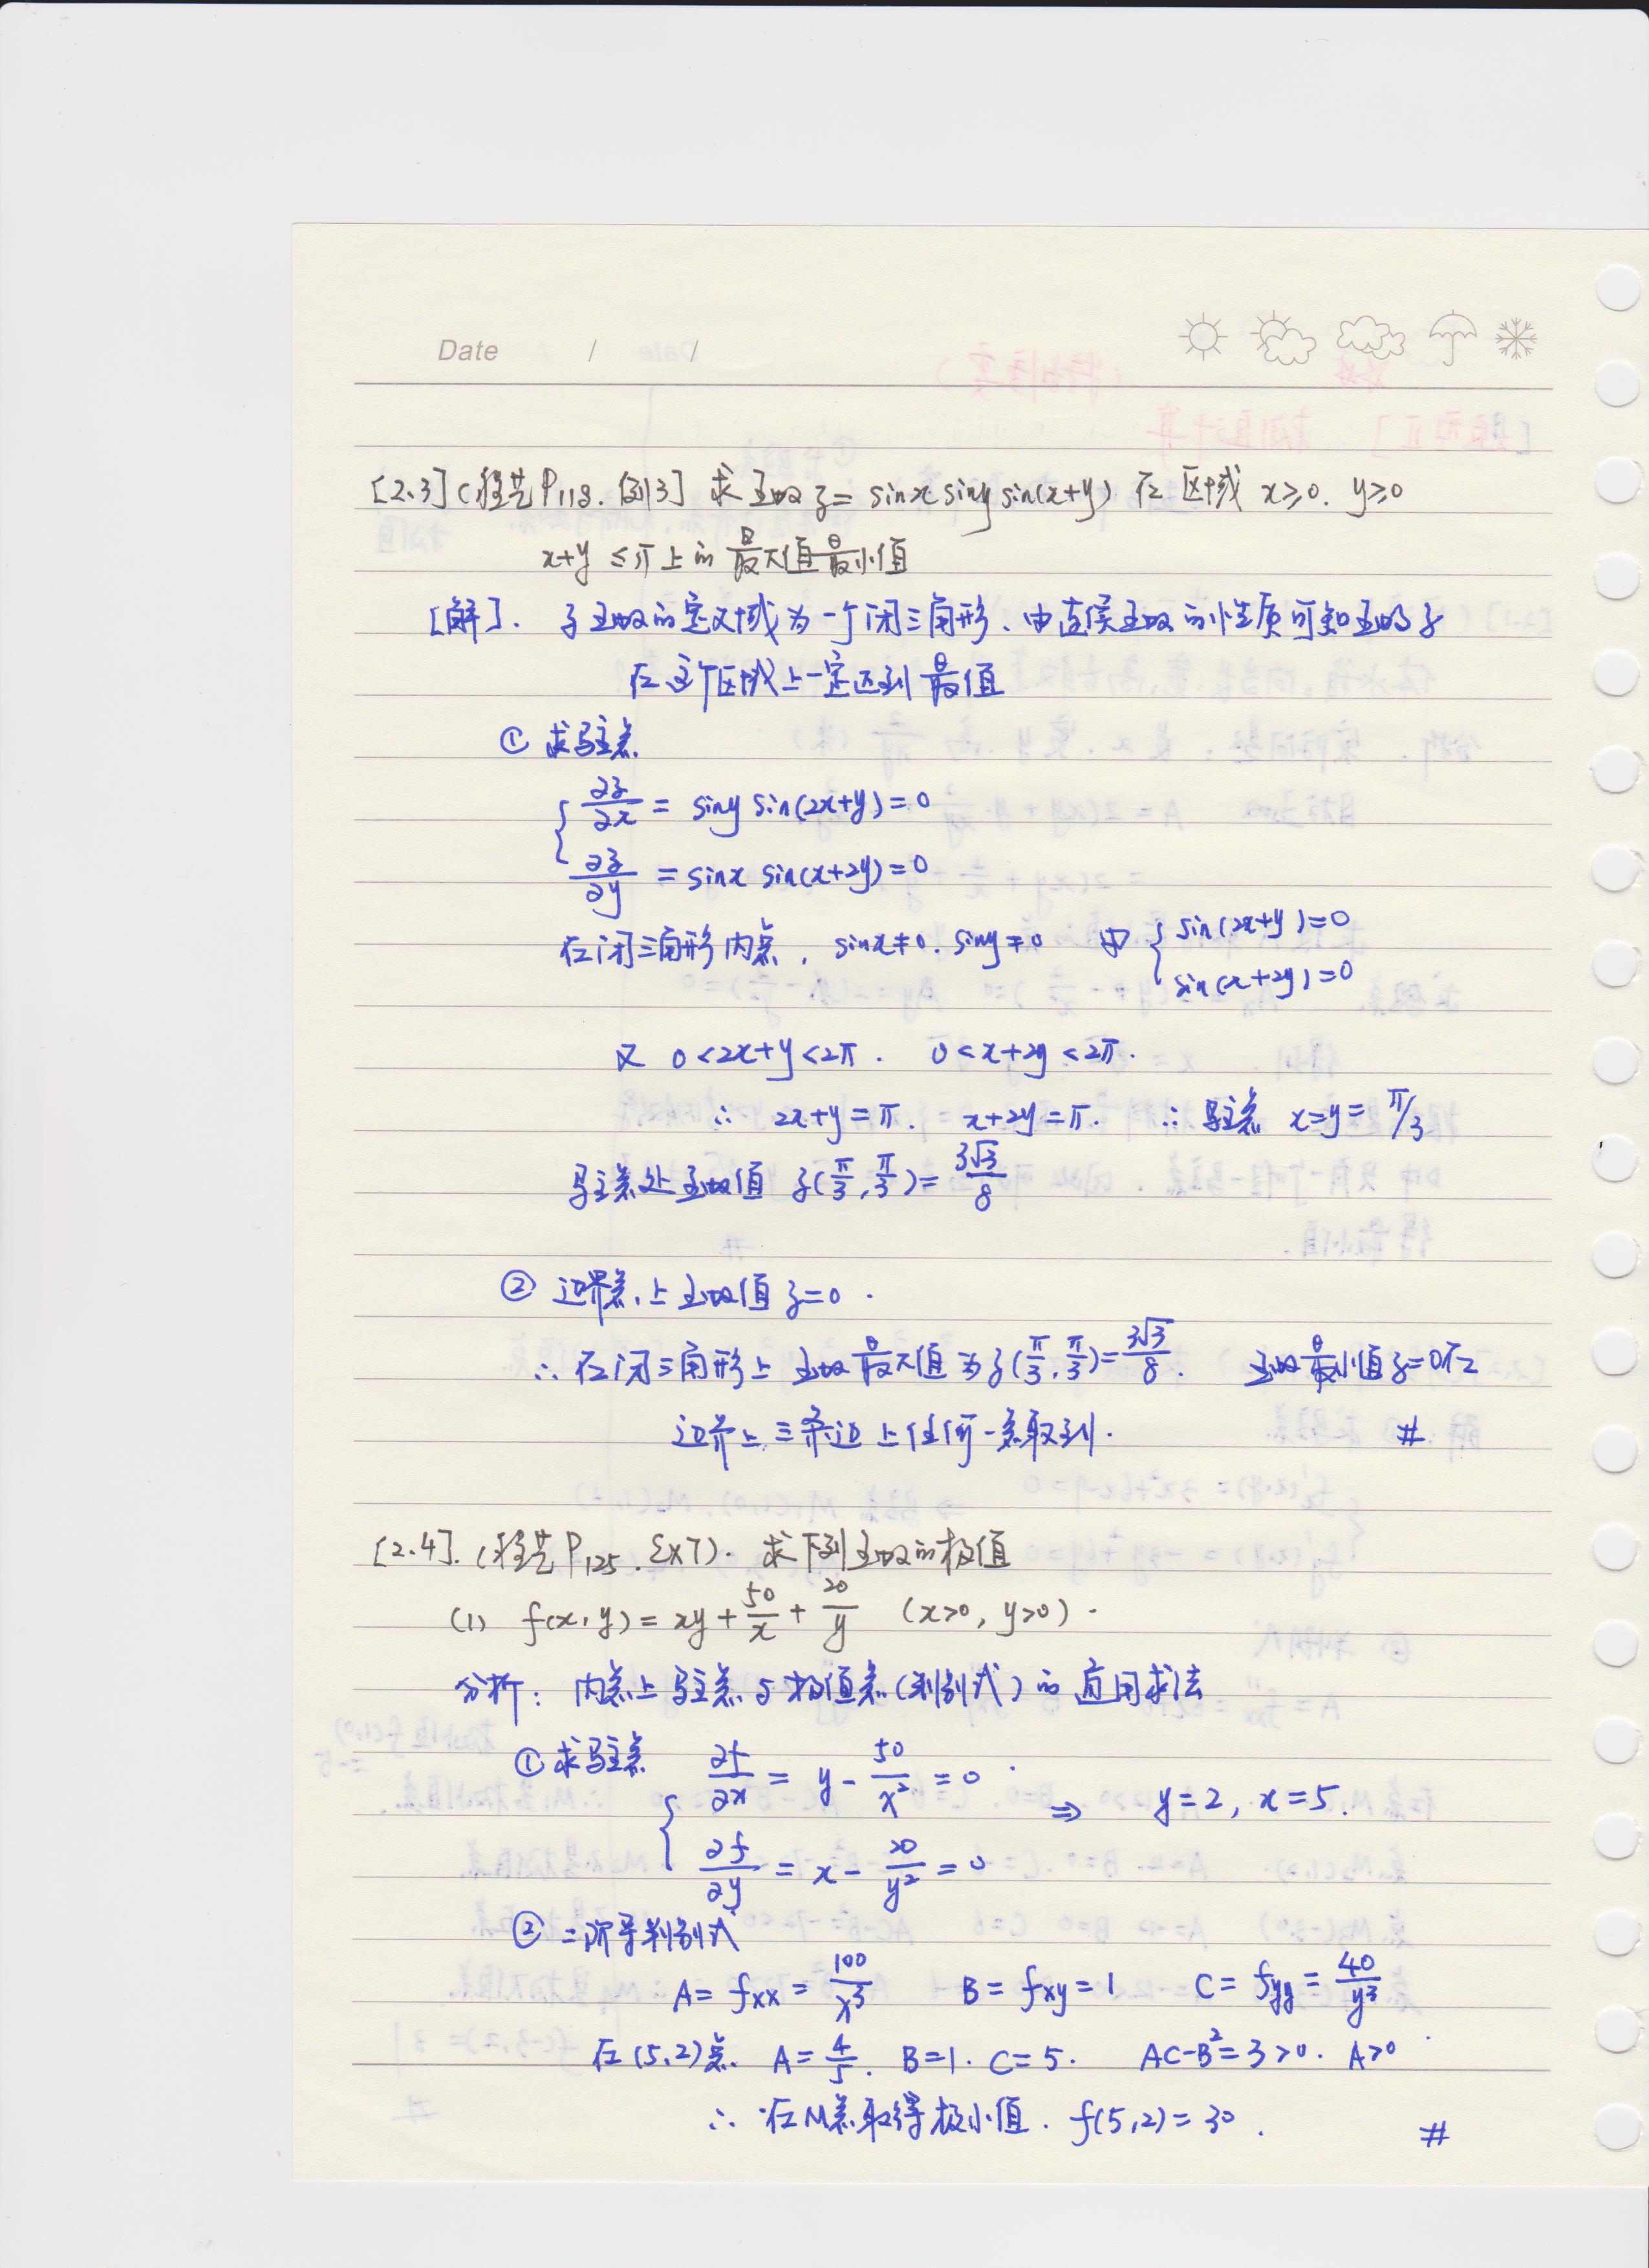 Date / /
[2.3] (程艺P118. 例3] 求函数 z = sinx siny sin(x+y) 在区域 x≥0. y≥0
x+y ≤π上的最大值最小值
[解]. z函数的定义域为一个闭三角形、由连续函数的性质可知函数z
在这个区域上一定达到最值
① 求驻点
{ ∂z/∂x = siny sin(2x+y)=0
∂z/∂y = sinx sin(x+2y)=0
在闭三角形内点, sinx≠0. siny≠0 由 { sin(2x+y)=0
sin(x+2y)=0
又 0<2x+y<2π. 0<x+2y<2π.
∴ 2x+y=π. x+2y=π. ∴ 驻点 x=y=π/3
驻点处函数值 z(π/3, π/3)= 3√3/8
② 边界点上函数值 z=0.
∴ 在闭三角形上 函数最大值为z(π/3, π/3)= 3√3/8. 函数最小值z=0在
边界上三条边上任何一点取到.
#
[2.4]. (程艺P125. EX7). 求下列函数的极值
(1) f(x,y)= xy + 50/x + 20/y (x>0, y>0).
分析: 内点上驻点与极值点(判别式)的应用求法
① 求驻点 { ∂f/∂x = y - 50/x² = 0
⇒ y=2, x=5.
∂f/∂y = x - 20/y² = 0
② 二阶导判别式
A= fxx = 100/x³ B= fxy = 1 C= fyy = 40/y³
在(5,2)点. A= 4/5. B=1. C=5. AC-B²=3>0. A>0
∴ 在M点取得极小值. f(5,2)=30.
#